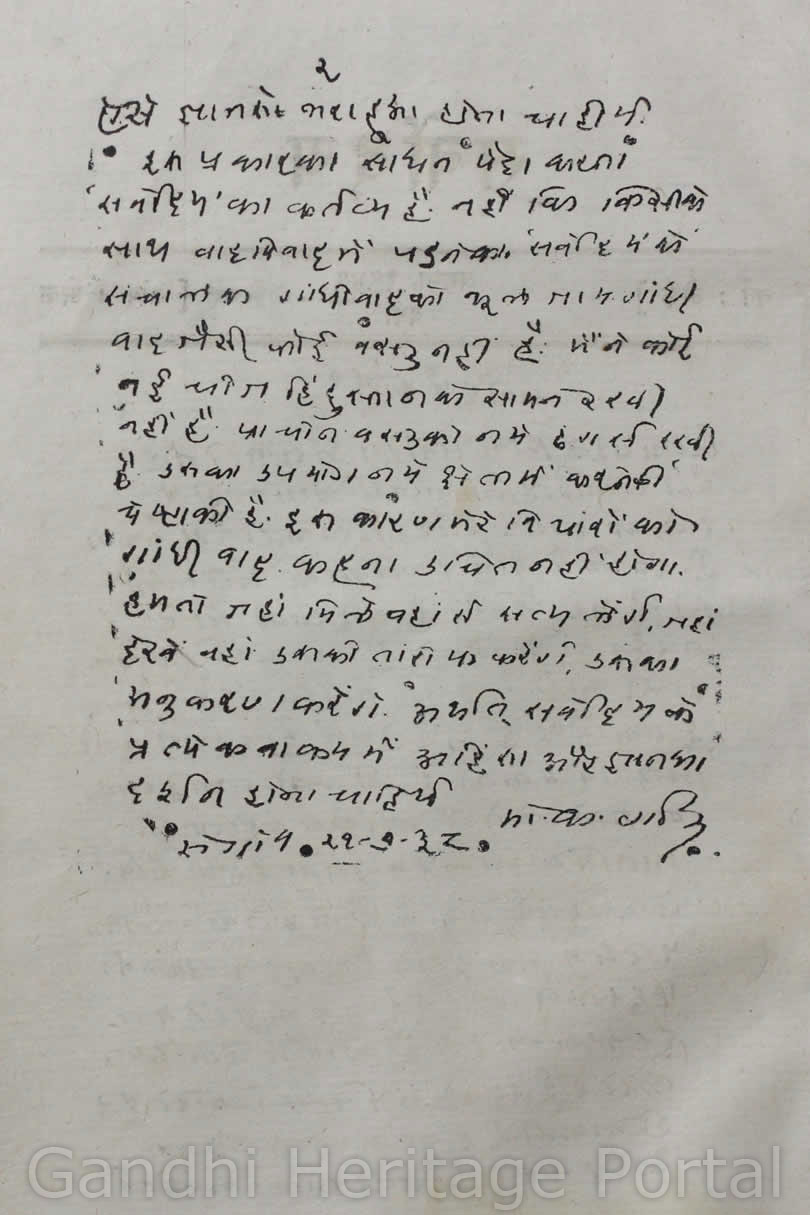 २
ऐसे ज्ञानसे भरा हुआ होना चाहीये.
इस प्रकारका साधन पेदा करना
'सर्वोदय' का कर्तव्य है. नहीं कि किसीके
साथ वादविवादमें पडनेका. 'सर्वोदय' के
संचालक गांधीवादको भूल जाय गांधी
वाद जैसी कोई वस्तु नहीं है. मैंने कोई
नई चीज हिंदुस्तानके सामने रखी
नहीं है. प्राचीन वस्तुको नये ढंगसे रखी
है उसका उपयोग नये क्षेत्रमें करनेकी
चेष्टाकी है. इस कारण मेरे विचारोंको
गांधी वाद कहना उचित नहीं होगा.
हमतो जहां मिले वहांसे सत्य लेंगे, जहां
देखें वहां उसकी तारीफ करेंगे, उसका
अनुकरण करेंगे. अर्थात् सर्वोदय के
प्रत्येक वाक्यमें अहिंसा और ज्ञानका
दर्शन होना चाहिये
मो. क. गांधी
सेगांव. २१-७-३८.
Gandhi Heritage Portal